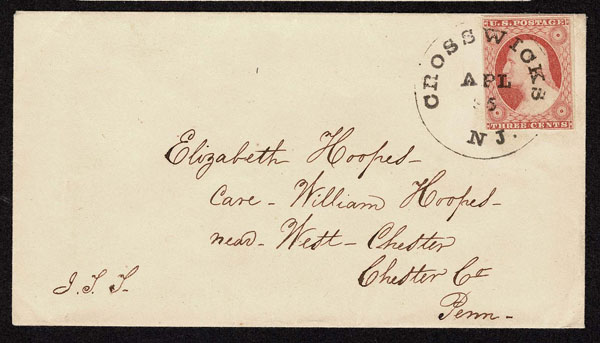 U.S. POSTAGE
THREE CENTS
CROSSWICKS
APL
N J.
Elizabeth Hoopes-
Care - William Hoopes-
near - West - Chester
Chester Co
Penn -